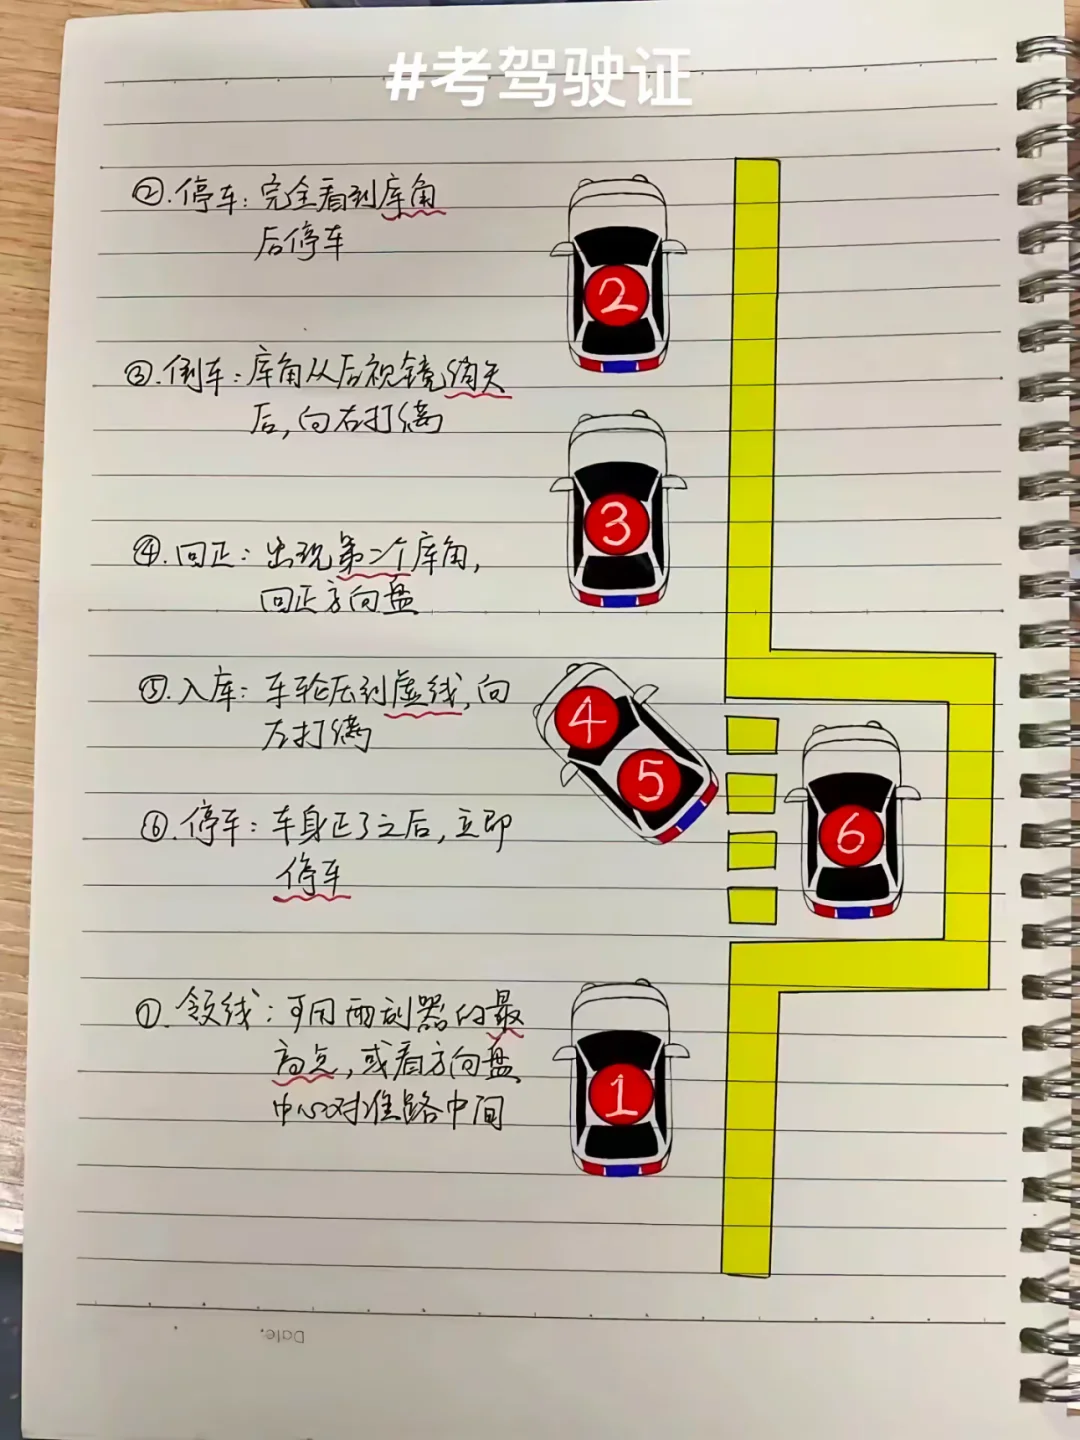 #考驾驶证
②.停车：完全看到库角
后停车
③.倒车：库角从后视镜消失
后，向右打满
④.回正：出现第二个库角，
回正方向盘
⑤.入库：车轮压到虚线，向
左打满
⑥.停车：车身正了之后，立即
停车
①.领线：可用雨刮器的最
高点，或看方向盘
中心对准路中间
2
3
4
5
6
1
Date.